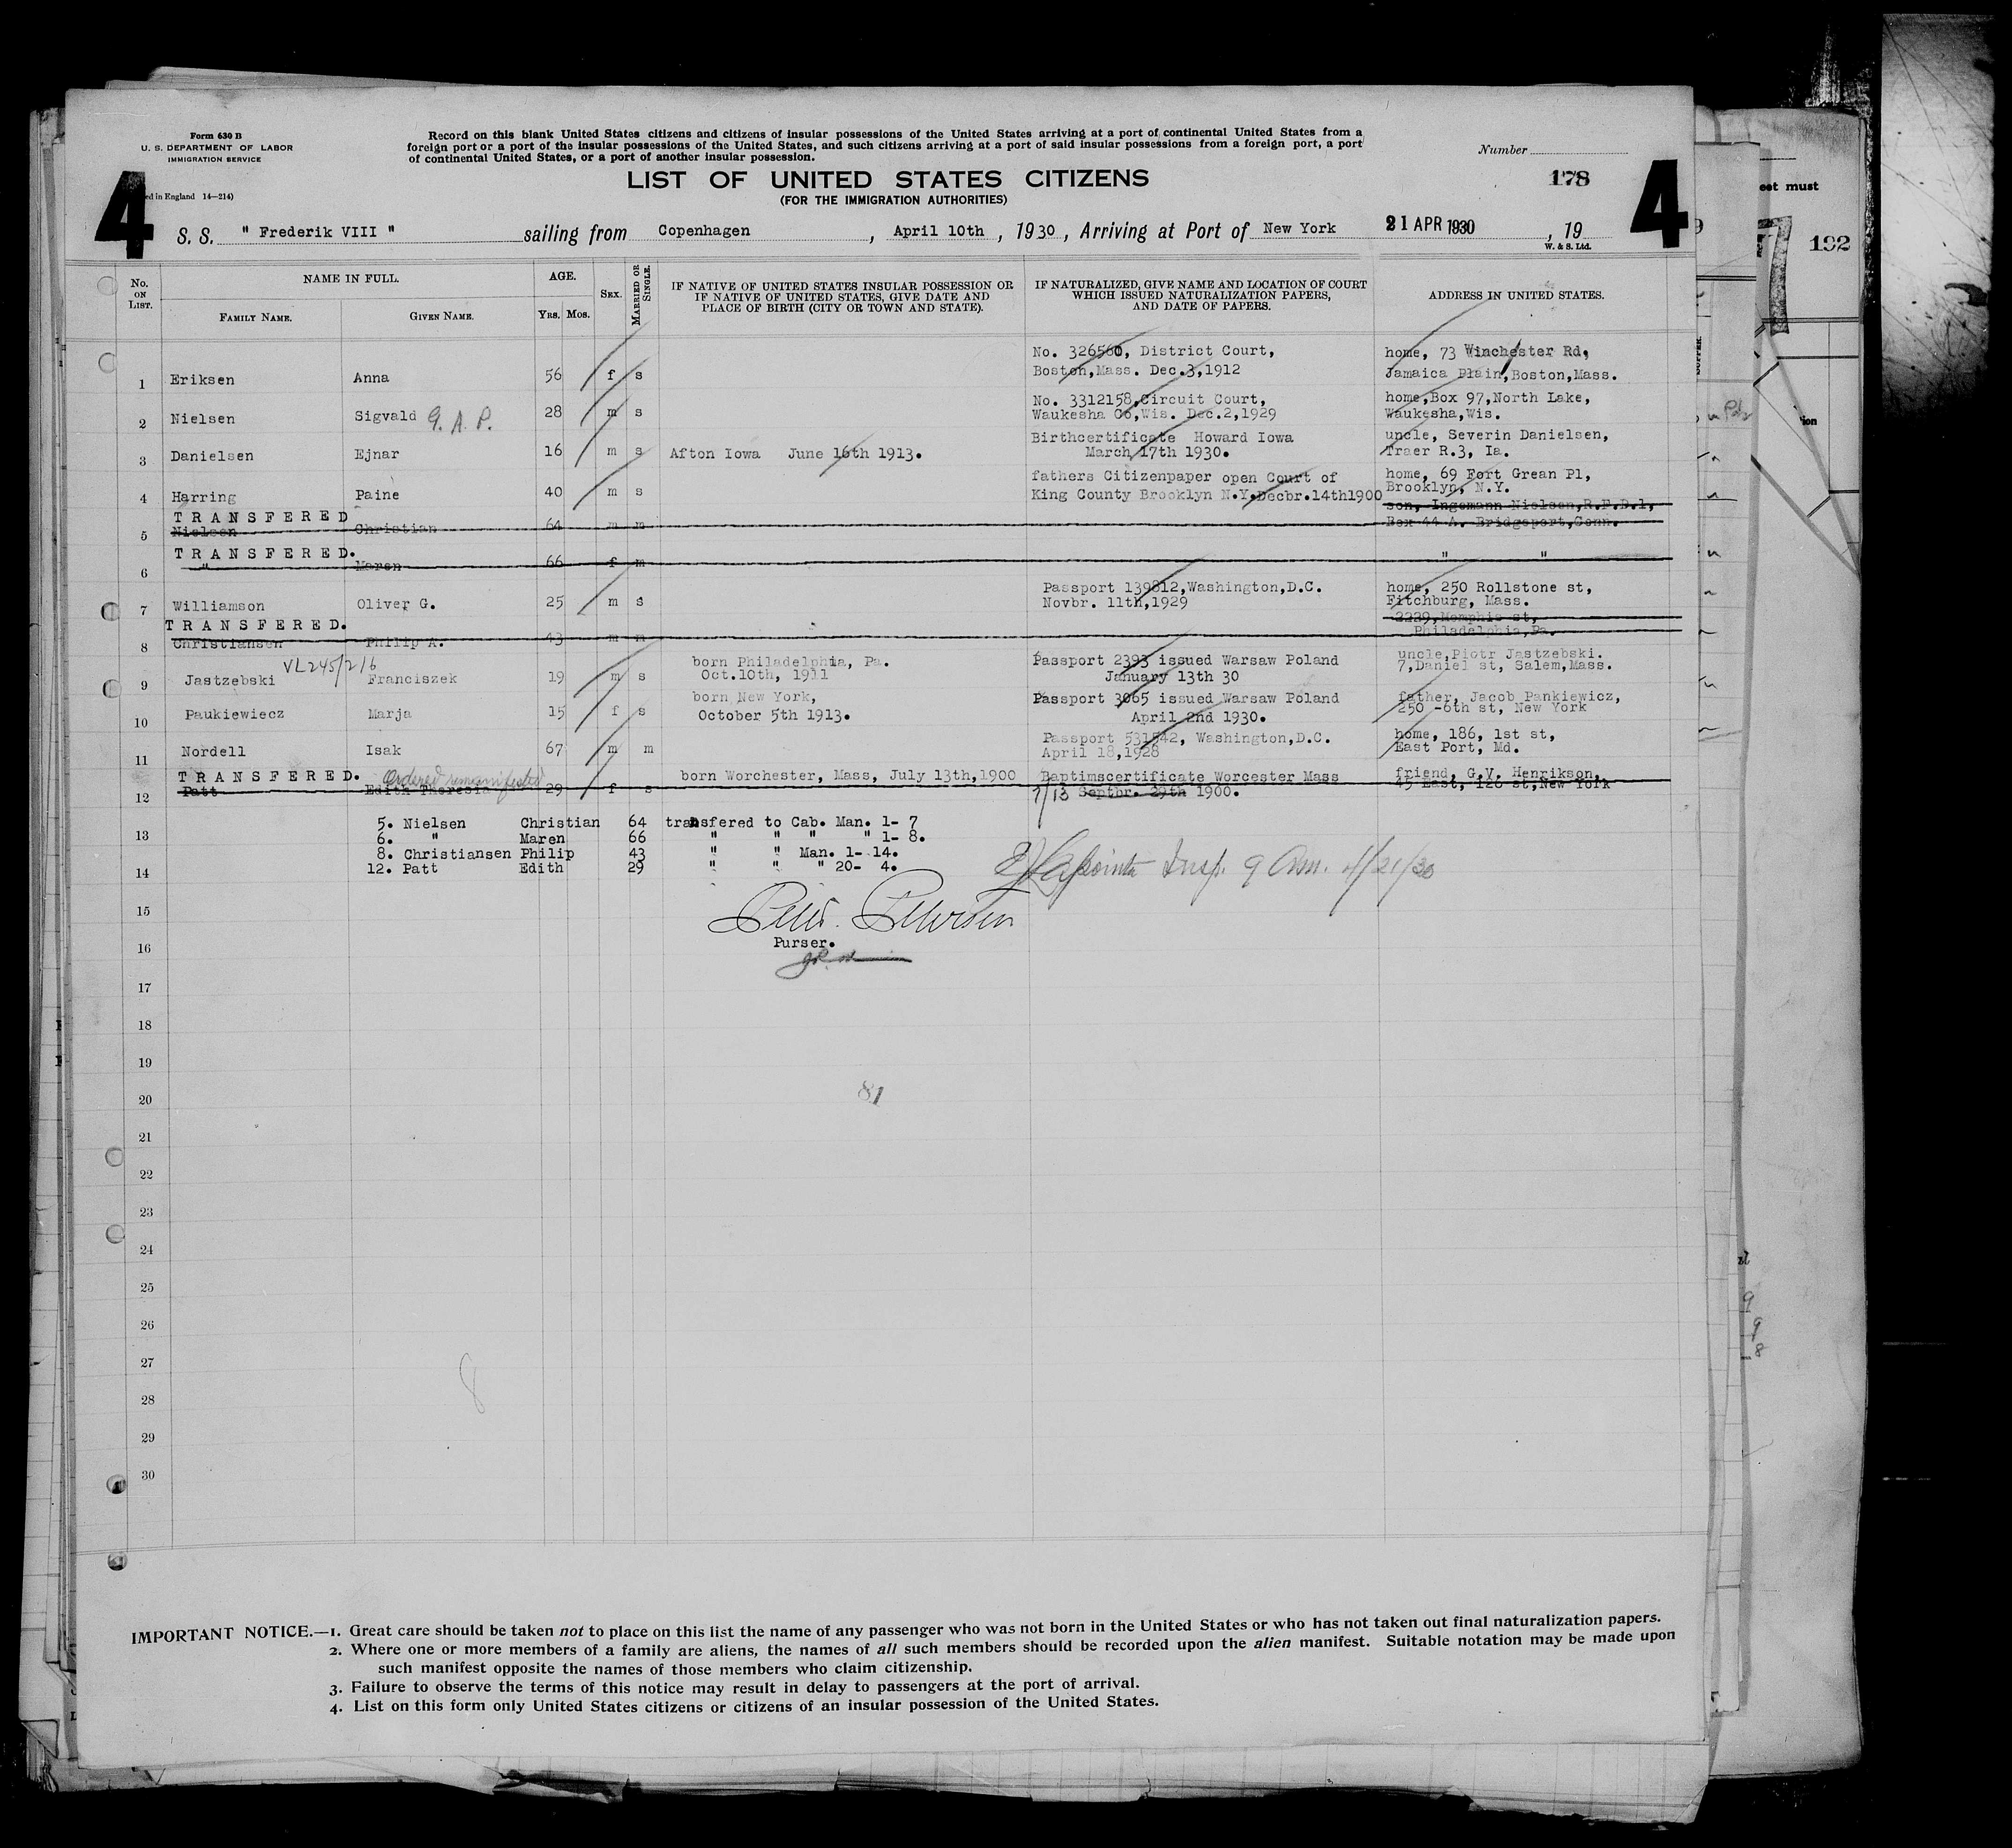 Form 630 B
U. S. DEPARTMENT OF LABOR
IMMIGRATION SERVICE
ed in England 14—214)
Record on this blank United States citizens and citizens of insular possessions of the United States arriving at a port of continental United States from a
foreign port or a port of the insular possessions of the United States, and such citizens arriving at a port of said insular possessions from a foreign port, a port
of continental United States, or a port of another insular possession.
Number
LIST OF UNITED STATES CITIZENS
(FOR THE IMMIGRATION AUTHORITIES)
178
4
4
S. S. " Frederik VIII " sailing from Copenhagen , April 10th , 1930 , Arriving at Port of New York 21 APR 1930 , 19
W. & S. Ltd.
No. ON LIST.
NAME IN FULL.
FAMILY NAME.
GIVEN NAME.
AGE.
YRS. MOS.
SEX.
MARRIED OR SINGLE.
IF NATIVE OF UNITED STATES INSULAR POSSESSION OR
IF NATIVE OF UNITED STATES, GIVE DATE AND
PLACE OF BIRTH (CITY OR TOWN AND STATE).
IF NATURALIZED, GIVE NAME AND LOCATION OF COURT
WHICH ISSUED NATURALIZATION PAPERS,
AND DATE OF PAPERS.
ADDRESS IN UNITED STATES.
No. 326560, District Court, home, 73 Winchester Rd,
1 Eriksen Anna 56 f s Boston,Mass. Dec.3,1912 Jamaica Plain,Boston,Mass.
No. 3312158,Circuit Court, home,Box 97,North Lake,
2 Nielsen Sigvald G. A. P. 28 m s Waukesha Co,Wis. Dec.2,1929 Waukesha,Wis.
Birthcertificate Howard Iowa uncle, Severin Danielsen,
3 Danielsen Ejnar 16 m s Afton Iowa June 16th 1913. March 17th 1930. Traer R.3, Ia.
fathers Citizenpaper open Court of home, 69 Fort Grean Pl,
4 Harring Paine 40 m s King County Brooklyn N.Y.Decbr.14th1900 Brooklyn, N.Y.
TRANSFERED son, Ingemann Nielsen,R.F.D.1,
5 Nielsen Christian 64 m m Box 44 A. Bridgeport,Conn.
TRANSFERED. " "
6 " Maren 66 f m
Passport 139812,Washington,D.C. home, 250 Rollstone st,
7 Williamson Oliver G. 25 m s Novbr. 11th,1929 Fitchburg, Mass.
TRANSFERED. 2229,Memphis st,
8 Christiansen Philip A. 43 m m Philadelphia,Pa.
VL245/216 born Philadelphia, Pa. Passport 2393 issued Warsaw Poland uncle,Piotr Jastzebski.
9 Jastzebski Franciszek 19 m s Oct.10th, 1911 January 13th 30 7,Daniel st, Salem,Mass.
born New York, Passport 3065 issued Warsaw Poland father, Jacob Pankiewicz,
10 Paukiewiecz Marja 15 f s October 5th 1913. April 2nd 1930. 250 -6th st, New York
Passport 531542, Washington,D.C. home, 186, 1st st,
11 Nordell Isak 67 m m April 18,1928 East Port, Md.
TRANSFERED. Ordered remanifested born Worchester, Mass, July 13th,1900 Baptimscertificate Worcester Mass friend, G.V. Henrikson,
12 Patt Edith Theresia 29 f s 7/13 Septbr. 29th 1900. 45 East, 126 st,New York
5. Nielsen Christian 64 transfered to Cab. Man. 1- 7
13
6. " Maren 66 " " " " 1- 8.
8. Christiansen Philip 43 " " Man. 1- 14.
14
12. Patt Edith 29 " " " 20- 4.
LaPointe Insp. 9 Am. 4/21/30
15
Peter Petersen
16
Purser.
17
18
19
20
81
21
22
23
24
25
26
27
8
28
29
30
IMPORTANT NOTICE.—1. Great care should be taken not to place on this list the name of any passenger who was not born in the United States or who has not taken out final naturalization papers.
2. Where one or more members of a family are aliens, the names of all such members should be recorded upon the alien manifest. Suitable notation may be made upon
such manifest opposite the names of those members who claim citizenship.
3. Failure to observe the terms of this notice may result in delay to passengers at the port of arrival.
4. List on this form only United States citizens or citizens of an insular possession of the United States.
eet must
192
ion